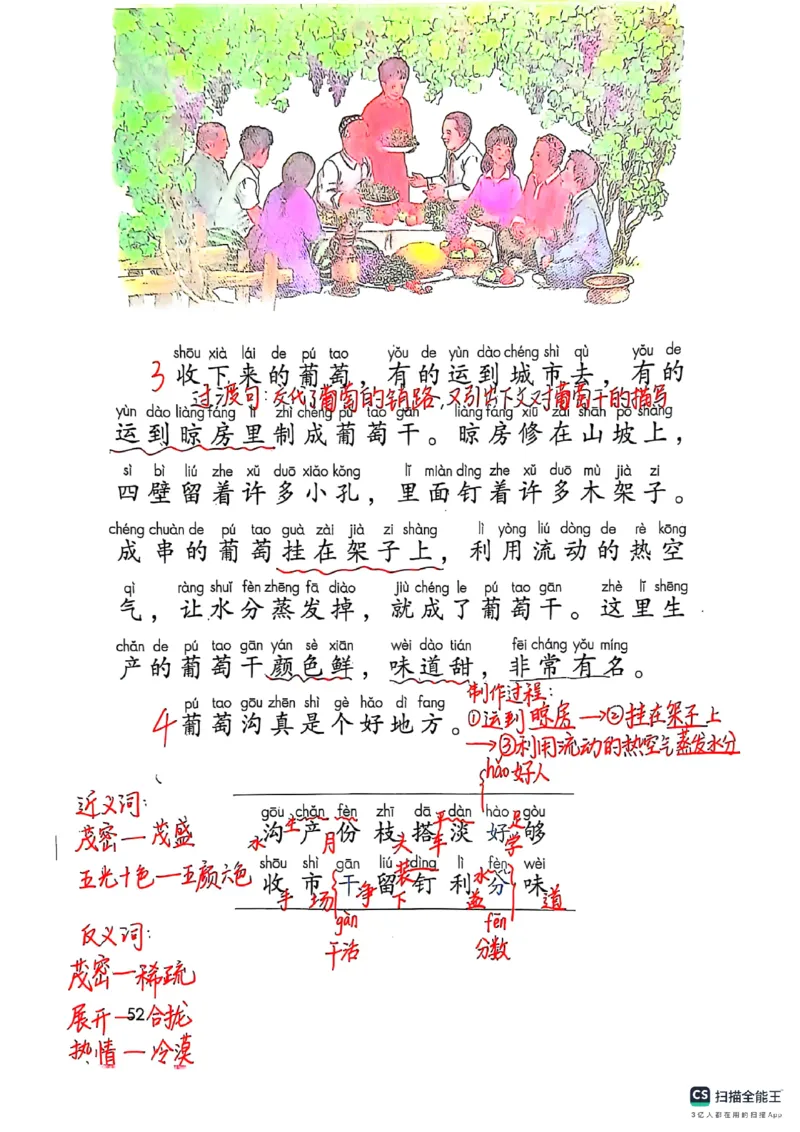 shōu xià lái de pú tao yǒu de yùn dào chéng shì qù yǒu de
3 收下来的葡萄，有的运到城市去，有的
过渡句：交代了葡萄的销路，又引出下文对葡萄干的描写
yùn dào liàng fáng lǐ zhì chéng pú tao gān liàng fáng xiū zài shān pō shàng
运到晾房里制成葡萄干。晾房修在山坡上，
sì bì liú zhe xǔ duō xiǎo kǒng lǐ miàn dìng zhe xǔ duō mù jià zi
四壁留着许多小孔，里面钉着许多木架子。
chéng chuàn de pú tao guà zài jià zi shàng lì yòng liú dòng de rè kōng
成串的葡萄挂在架子上，利用流动的热空
qì ràng shuǐ fèn zhēng fā diào jiù chéng le pú tao gān zhè lǐ shēng
气，让水分蒸发掉，就成了葡萄干。这里生
chǎn de pú tao gān yán sè xiān wèi dào tián fēi cháng yǒu míng
产的葡萄干颜色鲜，味道甜，非常有名。
制作过程：
pú tao gōu zhēn shì gè hǎo dì fang
4 葡萄沟真是个好地方。
①运到晾房→②挂在架子上
→③利用流动的热空气蒸发水分
hǎo 好人
近义词：
茂密—茂盛
五光十色—五颜六色
gōu chǎn fèn zhī dā dàn hào gòu
沟产份枝搭淡好够
水 生 月 大 平 车 足 学
shōu shì gān liú dìng lì fèn wèi
收市干留钉利分味
手 场 净 下 装 水 益 道
gàn fēn
干活 分数
反义词：
茂密—稀疏
展开—合拢
52
热情—冷漠
CS 扫描全能王
3亿人都在用的扫描App